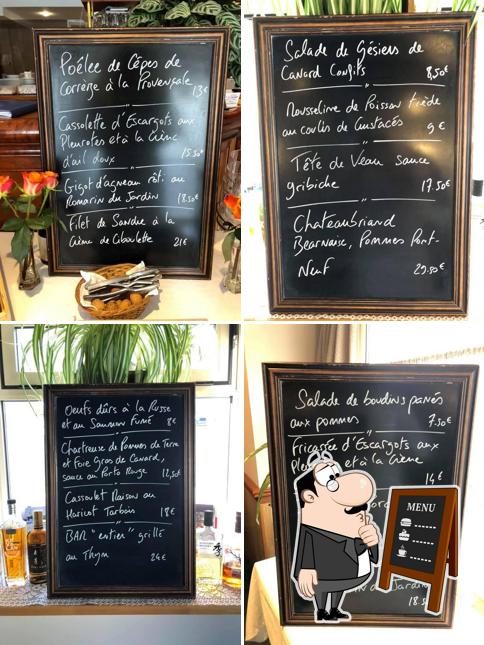 Poêlée de Cêpes de
Correze à la Provençale 13€
Cassolette d'Escargots aux
Pleurotes et à la Crème
d'ail doux 15.50€
Gigot d'agneau rôti au
Romarin du Jardin 18.50€
Filet de Sandre à la
Crème de Ciboulette 21€
Salade de Gésiers de
Canard Confits 8,50€
Mousseline de Poisson tiède
au coulis de Crustacés 9€
Tête de Veau sauce
gribiche 17.50€
Chateaubriand
Bearnaise, Pommes Pont-
Neuf 29.50€
Oeufs dûrs à la Russe
et au Saumon Fumé 8€
Chartreuse de Pommes de Terre
et Foie Gras de Canard,
sauce au Porto Rouge 12,50€
Cassoulet Maison au
Haricot Tarbais 18€
BAR "entier" grillé
au Thym 24€
Salade de boudins panés
aux pommes 7.50€
Fricassée d'Escargots aux
et à la Crème
14€
MENU
Jardin
18.5